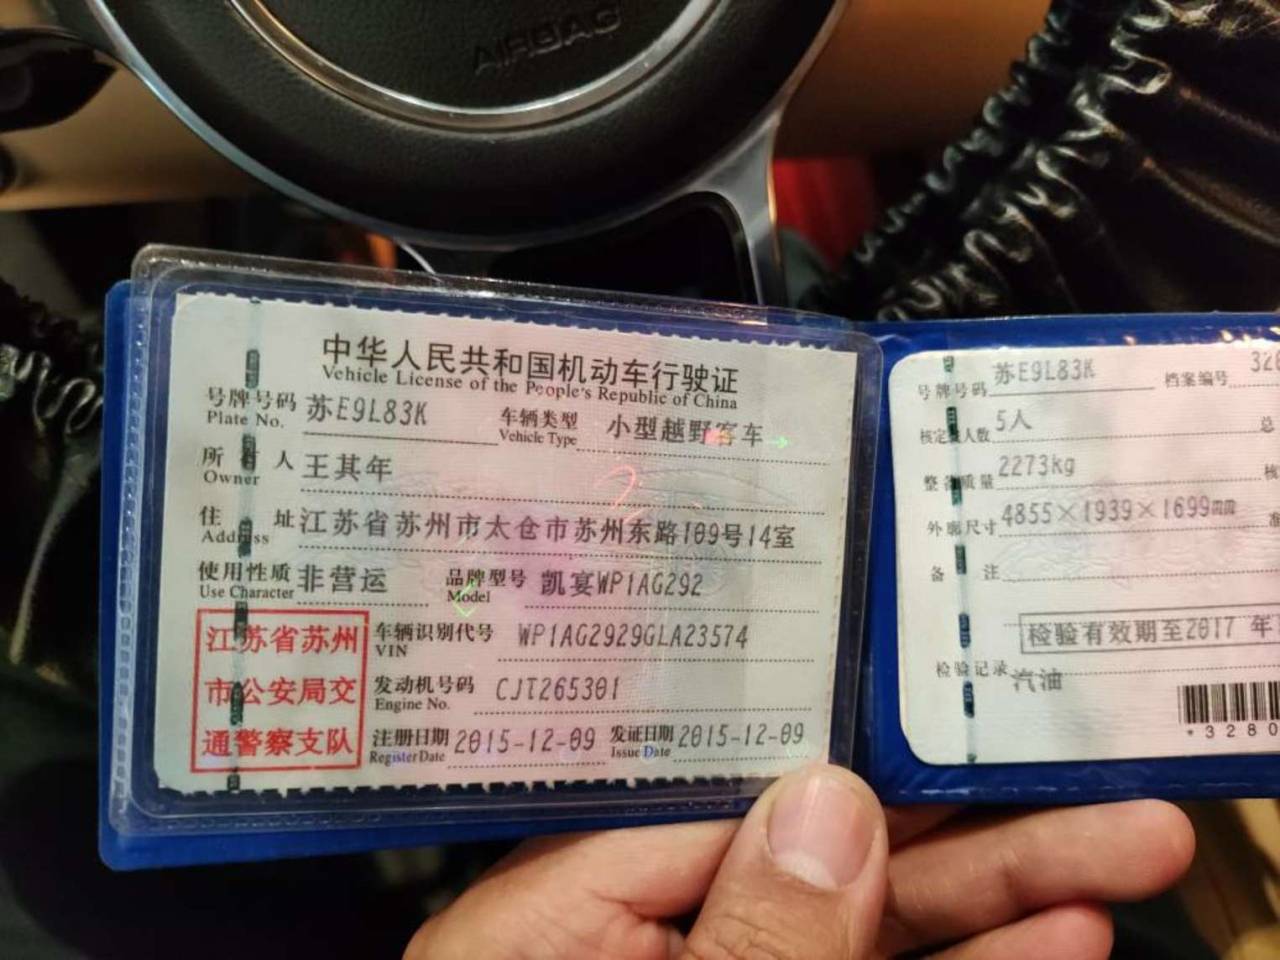 AIRBAG
中华人民共和国机动车行驶证
Vehicle License of the People's Republic of China
号牌号码 苏E9L83K 车辆类型 小型越野客车
Plate No. Vehicle Type
所 人 王其年
Owner
住 址 江苏省苏州市太仓市苏州东路109号14室
Address
使用性质 非营运 品牌型号 凯宴WP1AG292
Use Character Model
江苏省苏州
市公安局交
通警察支队
车辆识别代号 WP1AG2929GLA23574
VIN
发动机号码 CJT265301
Engine No.
注册日期 2015-12-09 发证日期 2015-12-09
Register Date Issue Date
号牌号码 苏E9L83K 档案编号 328
核定 人数 5人 总
整备质量 2273kg 核
外廓尺寸 4855×1939×1699mm 准
备 注
检验有效期至2017 年
检验记录
汽油
*3280